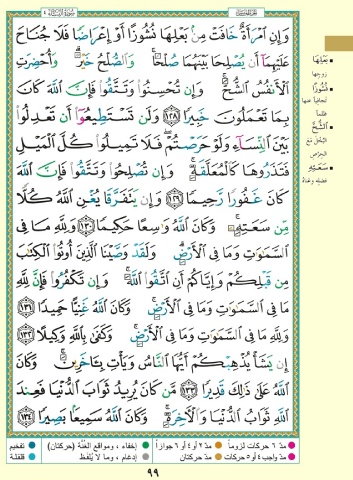 الجزء الخامس
سورة النساء ٤
وَإِنِ ٱمْرَأَةٌ خَافَتْ مِنۢ بَعْلِهَا نُشُوزًا أَوْ إِعْرَاضًا فَلَا جُنَاحَ
عَلَيْهِمَآ أَن يُصْلِحَا بَيْنَهُمَا صُلْحًا ۚ وَٱلصُّلْحُ خَيْرٌ ۗ وَأُحْضِرَتِ
ٱلْأَنفُسُ ٱلشُّحَّ ۚ وَإِن تُحْسِنُوا۟ وَتَتَّقُوا۟ فَإِنَّ ٱللَّهَ كَانَ
بِمَا تَعْمَلُونَ خَبِيرًا ١٢٨ وَلَن تَسْتَطِيعُوٓا۟ أَن تَعْدِلُوا۟
بَيْنَ ٱلنِّسَآءِ وَلَوْ حَرَصْتُمْ ۖ فَلَا تَمِيلُوا۟ كُلَّ ٱلْمَيْلِ
فَتَذَرُوهَا كَٱلْمُعَلَّقَةِ ۚ وَإِن تُصْلِحُوا۟ وَتَتَّقُوا۟ فَإِنَّ ٱللَّهَ
كَانَ غَفُورًا رَّحِيمًا ١٢٩ وَإِن يَتَفَرَّقَا يُغْنِ ٱللَّهُ كُلًّا
مِّن سَعَتِهِۦ ۚ وَكَانَ ٱللَّهُ وَٰسِعًا حَكِيمًا ١٣٠ وَلِلَّهِ مَا فِى
ٱلسَّمَٰوَٰتِ وَمَا فِى ٱلْأَرْضِ ۗ وَلَقَدْ وَصَّيْنَا ٱلَّذِينَ أُوتُوا۟ ٱلْكِتَٰبَ
مِن قَبْلِكُمْ وَإِيَّاكُمْ أَنِ ٱتَّقُوا۟ ٱللَّهَ ۚ وَإِن تَكْفُرُوا۟ فَإِنَّ لِلَّهِ
مَا فِى ٱلسَّمَٰوَٰتِ وَمَا فِى ٱلْأَرْضِ ۚ وَكَانَ ٱللَّهُ غَنِيًّا حَمِيدًا ١٣١
وَلِلَّهِ مَا فِى ٱلسَّمَٰوَٰتِ وَمَا فِى ٱلْأَرْضِ ۚ وَكَفَىٰ بِٱللَّهِ وَكِيلًا ١٣٢
إِن يَشَأْ يُذْهِبْكُمْ أَيُّهَا ٱلنَّاسُ وَيَأْتِ بِـَٔاخَرِينَ ۚ وَكَانَ
ٱللَّهُ عَلَىٰ ذَٰلِكَ قَدِيرًا ١٣٣ مَّن كَانَ يُرِيدُ ثَوَابَ ٱلدُّنْيَا فَعِندَ
ٱللَّهِ ثَوَابُ ٱلدُّنْيَا وَٱلْـَٔاخِرَةِ ۚ وَكَانَ ٱللَّهُ سَمِيعًۢا بَصِيرًا ١٣٤
بَعْلِهَا
زوجها
نُشُوزًا
تجافيًا عنها
ظلمًا
الشُّحَّ
البخل مع
الحرص
سَعَتِهِ
فضله وغناه
مدّ ٦ حركات لزوماً
مدّ ٢ أو ٤ أو ٦ جوازاً
إخفاء، ومواقع الغُنَّة (حركتان)
تفخيم
مدّ واجب ٤ أو ٥ حركات
مدّ حركتان
إدغام، وما لا يُلفَظ
قلقلة
٩٩